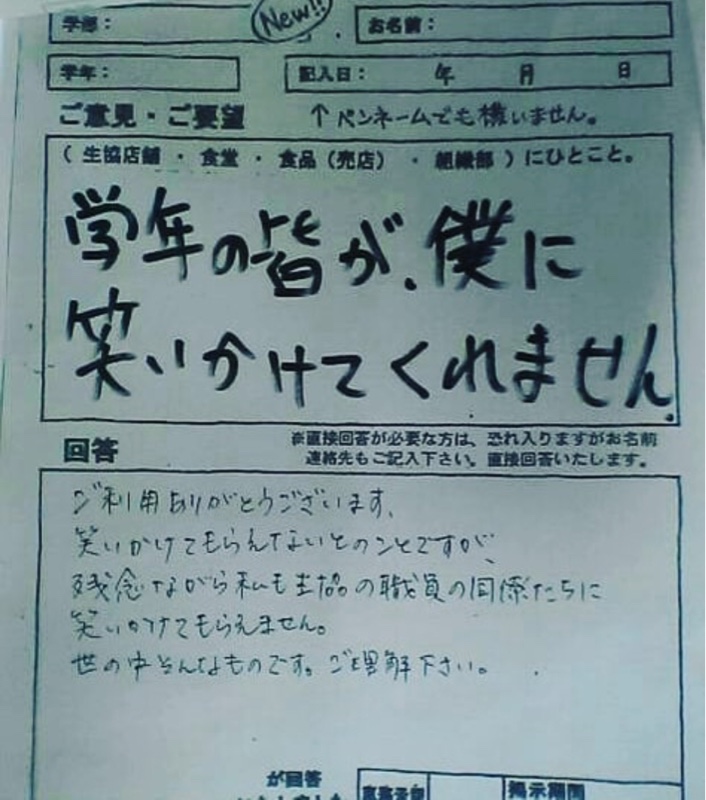 学部：
New!!
お名前：
学年：
記入日： 年 月 日
ご意見・ご要望 ↑ペンネームでも構いません。
（ 生協店舗 ・ 食堂 ・ 食品（売店） ・ 組織部 ）にひとこと。
学年の皆が、僕に
笑いかけてくれません。
回答
※直接回答が必要な方は、恐れ入りますがお名前
連絡先もご記入下さい。直接回答いたします。
ご利用ありがとうございます。
笑いかけてもらえないとのことですが、
残念ながら私も生協の職員の同僚たちに
笑いかけてもらえません。
世の中そんなものです。ご理解下さい。
が回答
掲示期間